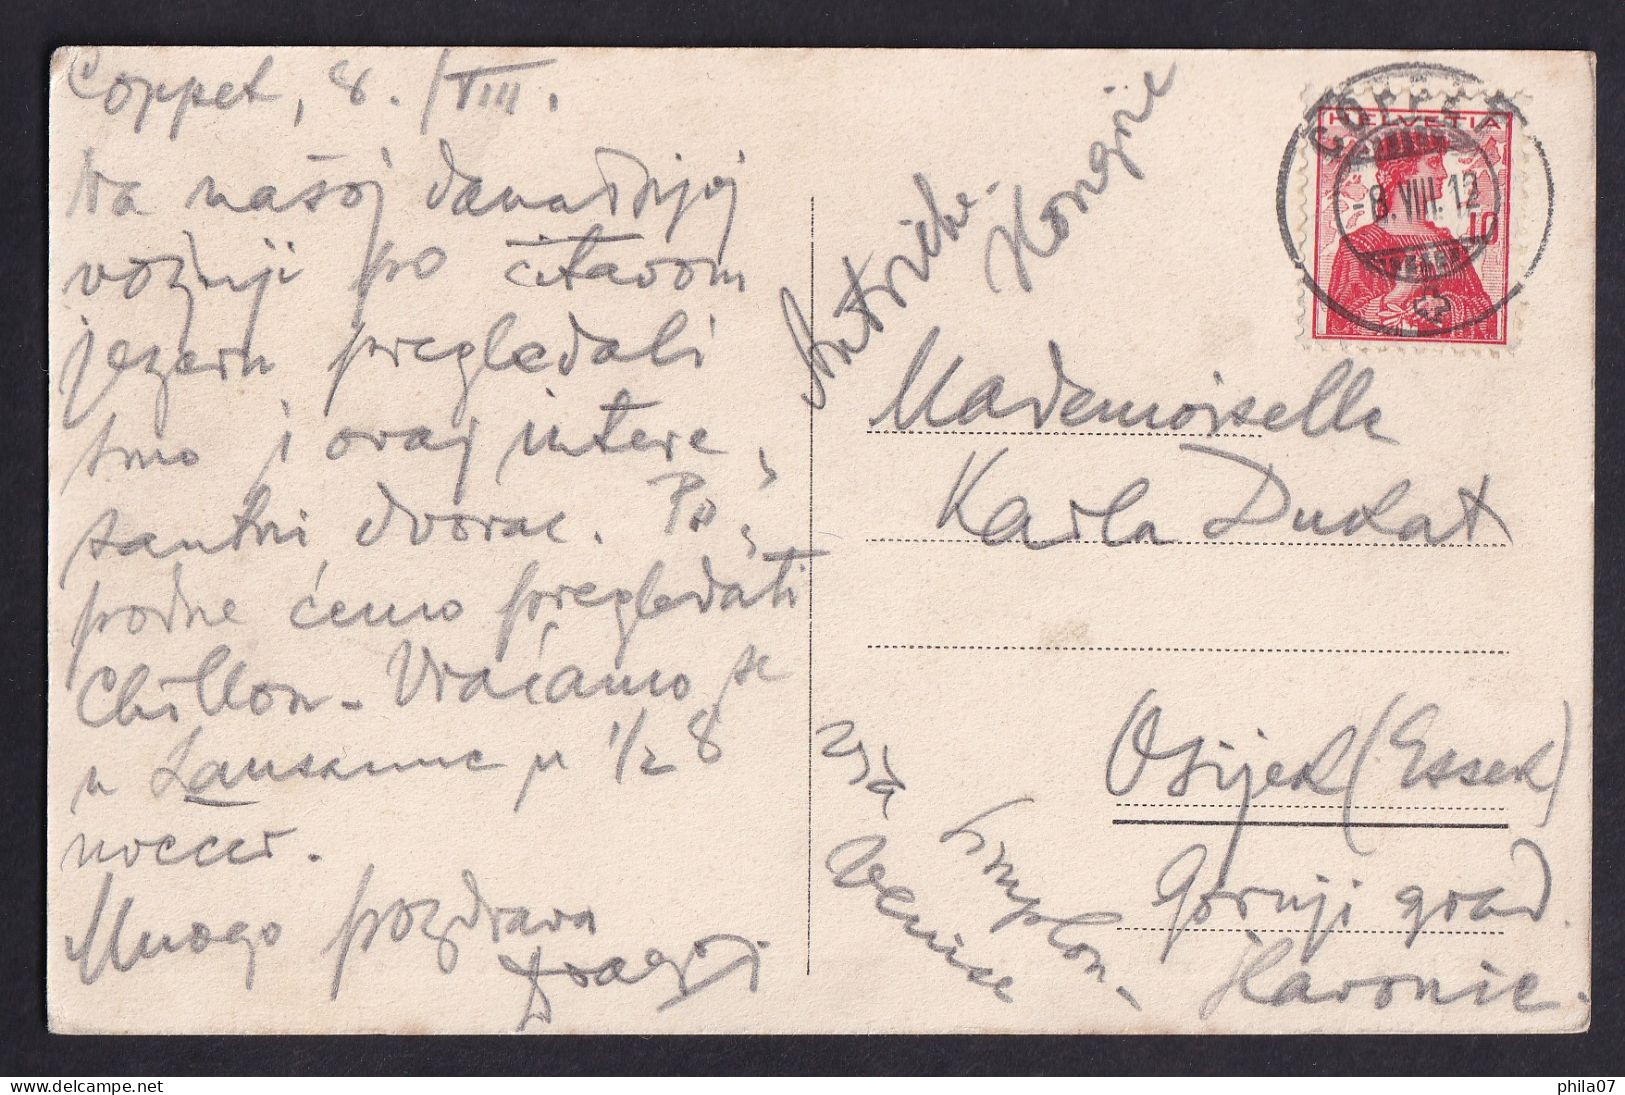 Coppet, 8./VIII.
Na našoj današnjoj
vožnji po čitavom
jezeru pregledali
smo i ovaj intere,
santni dvorac. Po,
podne ćemo pregledati
Chillon - Vraćamo se
u Lausanne u 1/2 8
Mnogo pozdrava
Dragoj
Autriche-
Hongrie
HELVETIA
10
COPPET
-8.VIII.12
Mademoiselle
Karla Dukat
Osijek (Essek)
Gornji grad.
Slavonie.
via
Simplon-
Venise
phila07